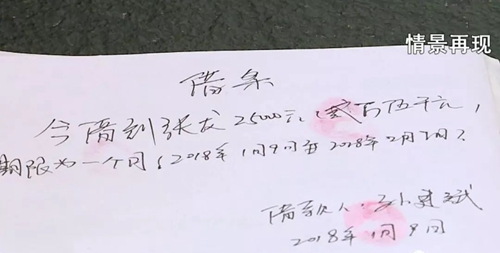 情景再现
借条
今借到张龙25000元(贰万伍千元),
期限为一个月(2018年1月9日至2018年2月7日)
借款人:孙建斌
2018年1月9日